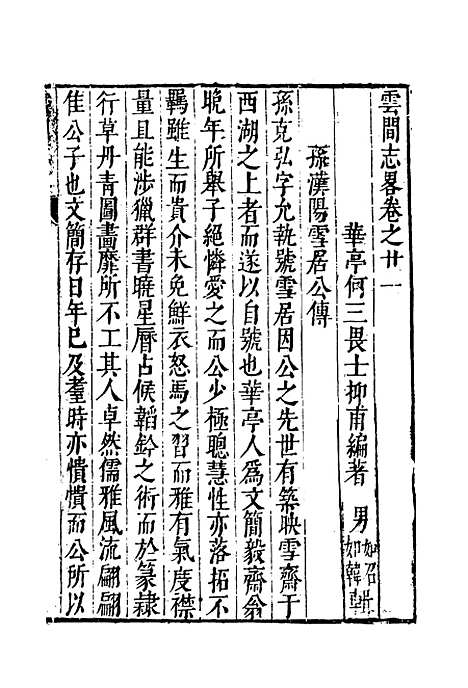 雲間志畧卷之廿一
華亭何三畏士抑甫編著 男如召如韓
孫漢陽雪居公傳
孫克弘字允執號雪居因公之先世有築映雪齋于
西湖之上者而遂以自號也華亭人爲文簡毅齋翁
晚年所舉子絕憐愛之而公少極聰慧性亦落拓不
羈雖生而貴介未免鮮衣怒馬之習而雅有氣度襟
量且能涉獵群書曉星曆占候韜鈐之術而於篆隸
行草丹青圖畵靡所不工其人卓然儒雅風流翩翩
佳公子也文簡存日年巳及耋時亦憒憒而公所以